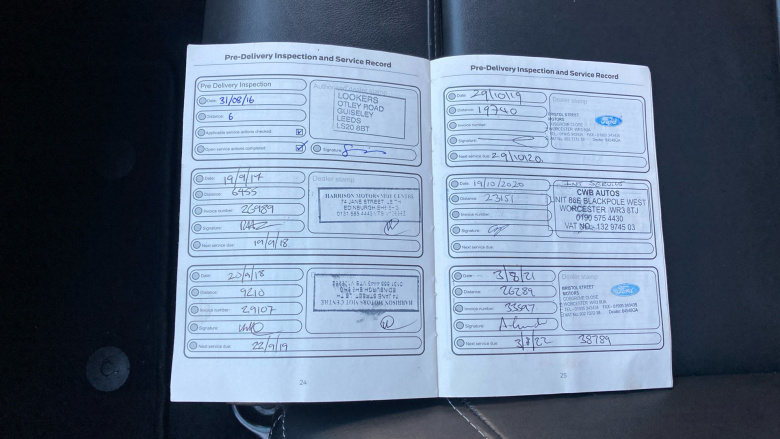 Pre-Delivery Inspection and Service Record
Pre Delivery Inspection
Date: 31/08/16
Distance: 6
Applicable service actions checked
Open service actions completed
Signature
Authorised dealer stamp
LOOKERS
OTLEY ROAD
GUISELEY
LEEDS
LS20 8BT
Date: 19/9/17
Distance: 6455
Invoice number:
Signature:
Next service due: 19/9/18
Dealer stamp
HARRISON MOTORS MOT CENTRE
74 JANE STREET
EDINBURGH
0131 555 4443
Date: 20/9/18
Distance: 9210
Invoice number: 29107
Signature:
Next service due: 22/9/19
HARRISON MOTORS MOT CENTRE
74 JANE STREET
EDINBURGH
24
Pre-Delivery Inspection and Service Record
Date: 29/10/19
Distance: 19740
Invoice number:
Signature:
Next service due: 29/10/20.
Dealer stamp
BRISTOL STREET
MOTORS
Ford
Date: 19/10/2020
Distance: 23151
Invoice number:
Signature:
Next service due:
CWB AUTOS
UNIT 86E BLACKPOLE WEST
WORCESTER WR3 8TJ
0190 575 4430
VAT NO - 132 9745 03
Date: 3/8/21
Distance: 28789
Invoice number: 33597
Signature:
Next service due: 3/8/22 38789
Dealer stamp
BRISTOL STREET
MOTORS
Ford
25